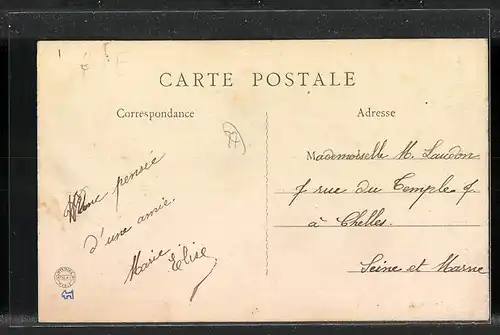 CARTE POSTALE
Correspondance
Adresse
Une pensée
d'une amie.
Marie
Élise
Mademoiselle M. Laudon
7 rue du Temple 7
à Chelles.
Seine et Marne